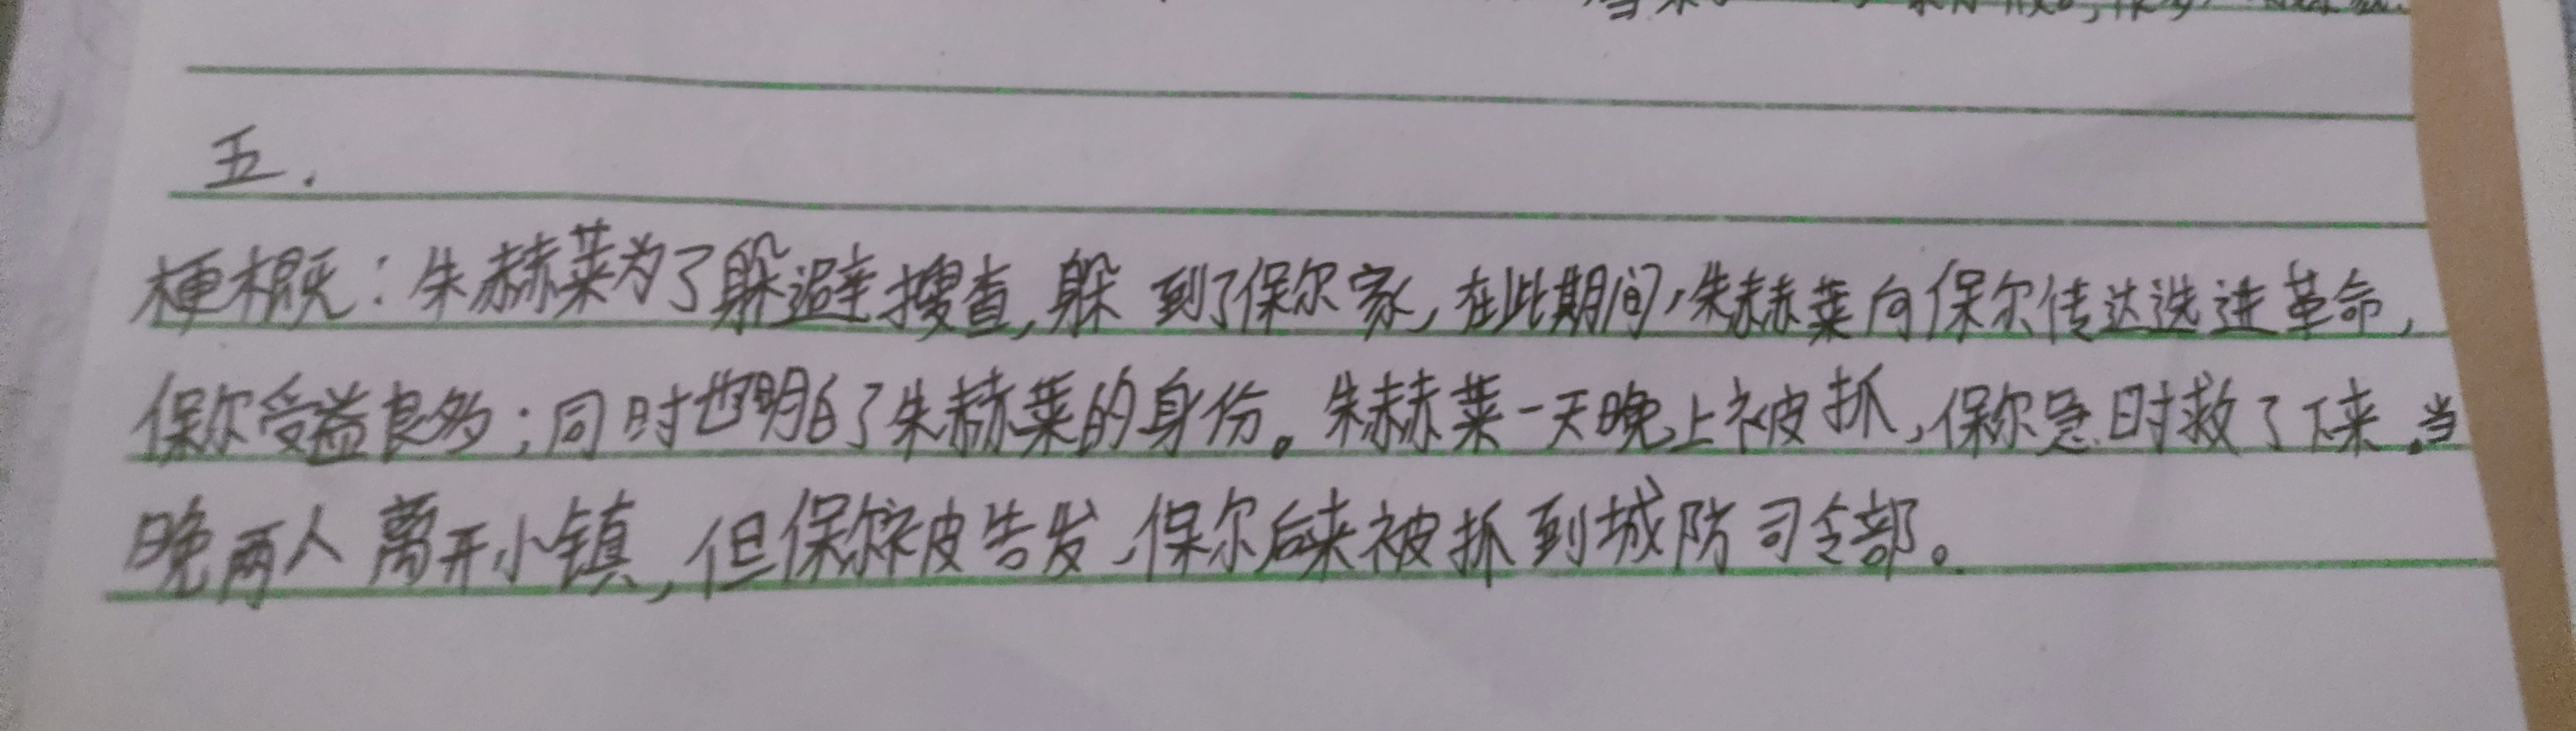 五.
梗概：朱赫莱为了躲避搜查,躲到了保尔家,在此期间,朱赫莱向保尔传达选进革命,
保尔受益良多;同时也明白了朱赫莱的身份。朱赫莱一天晚上被抓,保尔急时救了下来。当
晚两人离开小镇,但保尔被告发,保尔后来被抓到城防司令部。